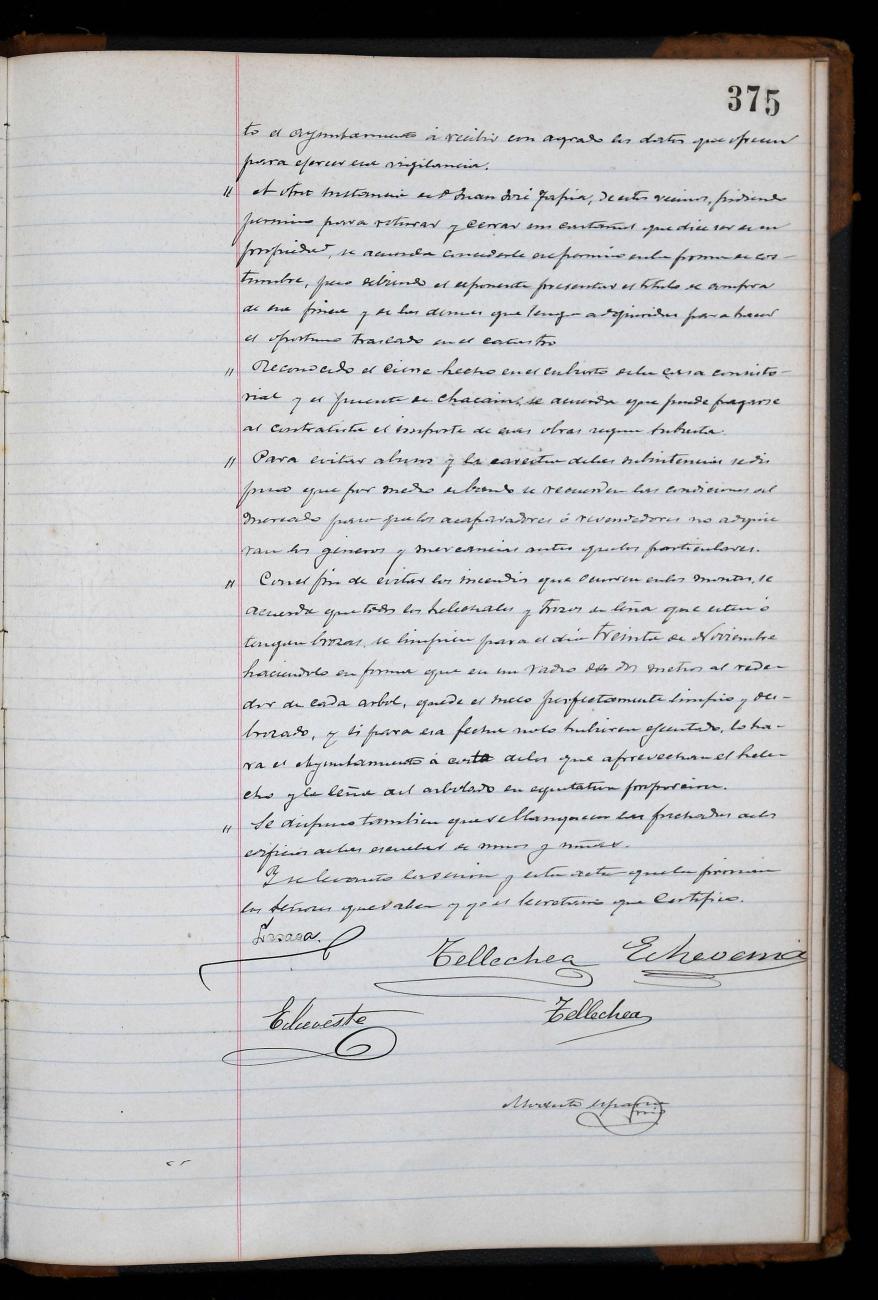 375
to el Ayuntamiento á recibir con agrado los datos que ofrecen
para ejercer esa vigilancia.
" A otra instancia de D. Juan José Tapia, de estos vecinos, pidiendo
permiso para roturar y cerrar un castañal que dice ser de su
propiedad, se acuerda concederle ese permiso en la forma de cos-
tumbre, pero debiendo el esponente presentar el título de compra
de esa finca y de las demas que tenga adquiridas para hacer
el oportuno traslado en el catastro
" Reconocido el cierre hecho en el cubierto de la casa consisto-
rial y el puente de Chacain, se acuerda que puede pagarse
al contratista el importe de esas obras segun subasta.
" Para evitar abusos y la carestia de las subsistencias se dis
puso que por medio de bando se recuerden las condiciones del
mercado para que los acaparadores ó revendedores no adquie
ran los géneros y mercancias antes que los particulares.
" Con el fin de evitar los incendios que ocurren en los montes, se
acuerda que todos los helechales y trozos de leña que esten ó
tengan brozas, se limpien para el dia treinta de Noviembre
haciendolo en forma que en un radio de dos metros al rede-
dor de cada arbol, quede el suelo perfectamente limpio y des-
brozado, y si para esa fecha no lo hubieren ejecutado, lo ha-
ra el Ayuntamiento á costa de los que aprovechan el hele-
cho y la leña del arbolado en equitativa proporcion.
" Se dispuso tambien que se blanqueen las fachadas de los
edificios de las escuelas de niños y niñas.
Y se levantó la sesion y esta acta que la firman
los Señores que saben y yo el Secretario que Certifico.
Tellechea Echeverria
Echeveste Tellechea
Modesto